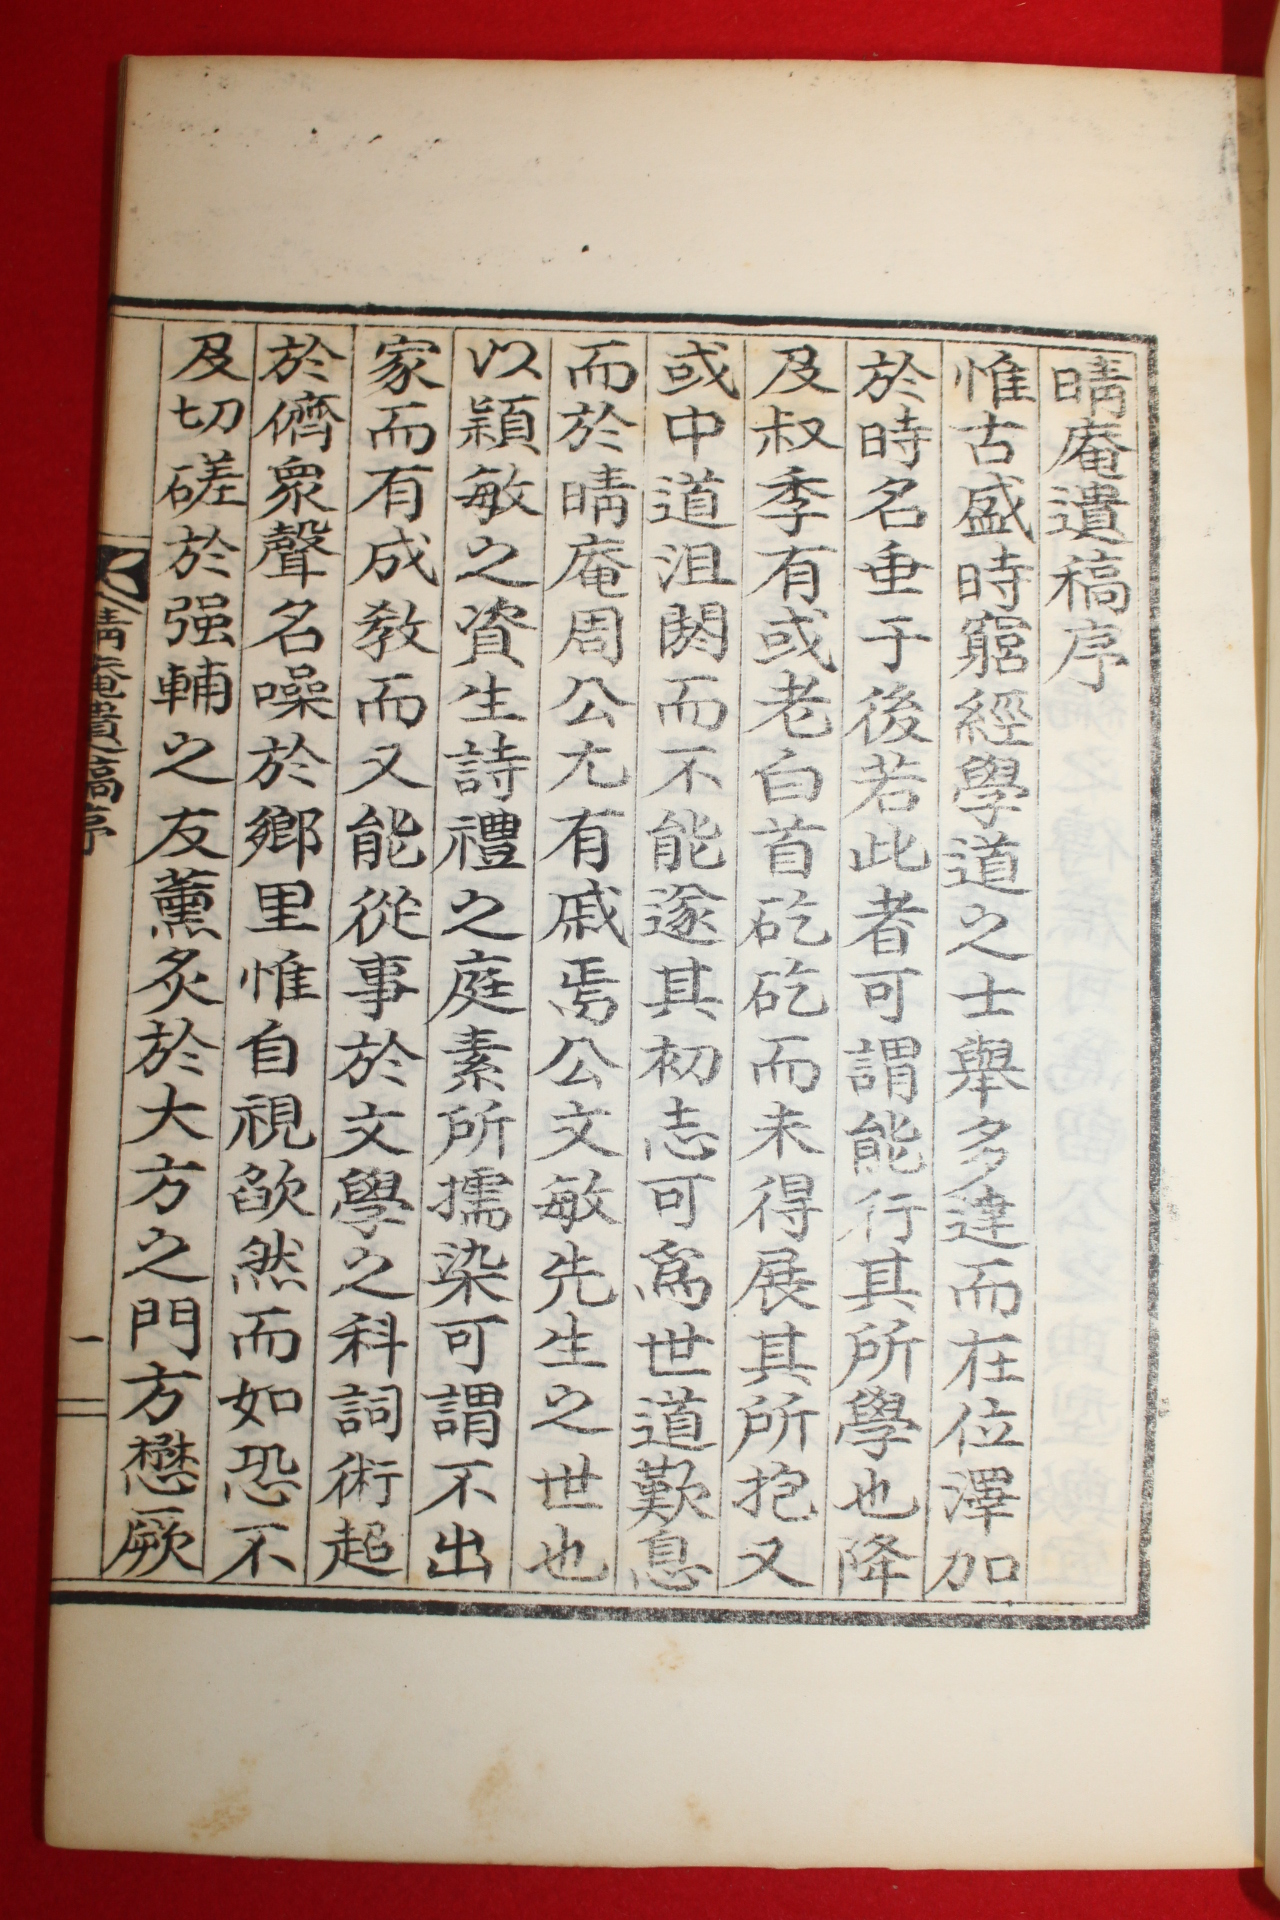 晴庵遺稿序
惟古盛時窮經學道之士擧多達而在位澤加
於時名垂于後若此者可謂能行其所學也降
及叔季有或老白首矻矻而未得展其所抱又
或中道沮閼而不能遂其初志可爲世道歎息
而於晴庵周公尤有戚焉公文敏先生之世也
以穎敏之資生詩禮之庭素所擩染可謂不出
家而有成教而又能從事於文學之科詞術超
於儕衆聲名噪於鄕里惟自視欿然而如恐不
及切磋於强輔之友薰炙於大方之門方懋厥
晴庵遺稿序
一